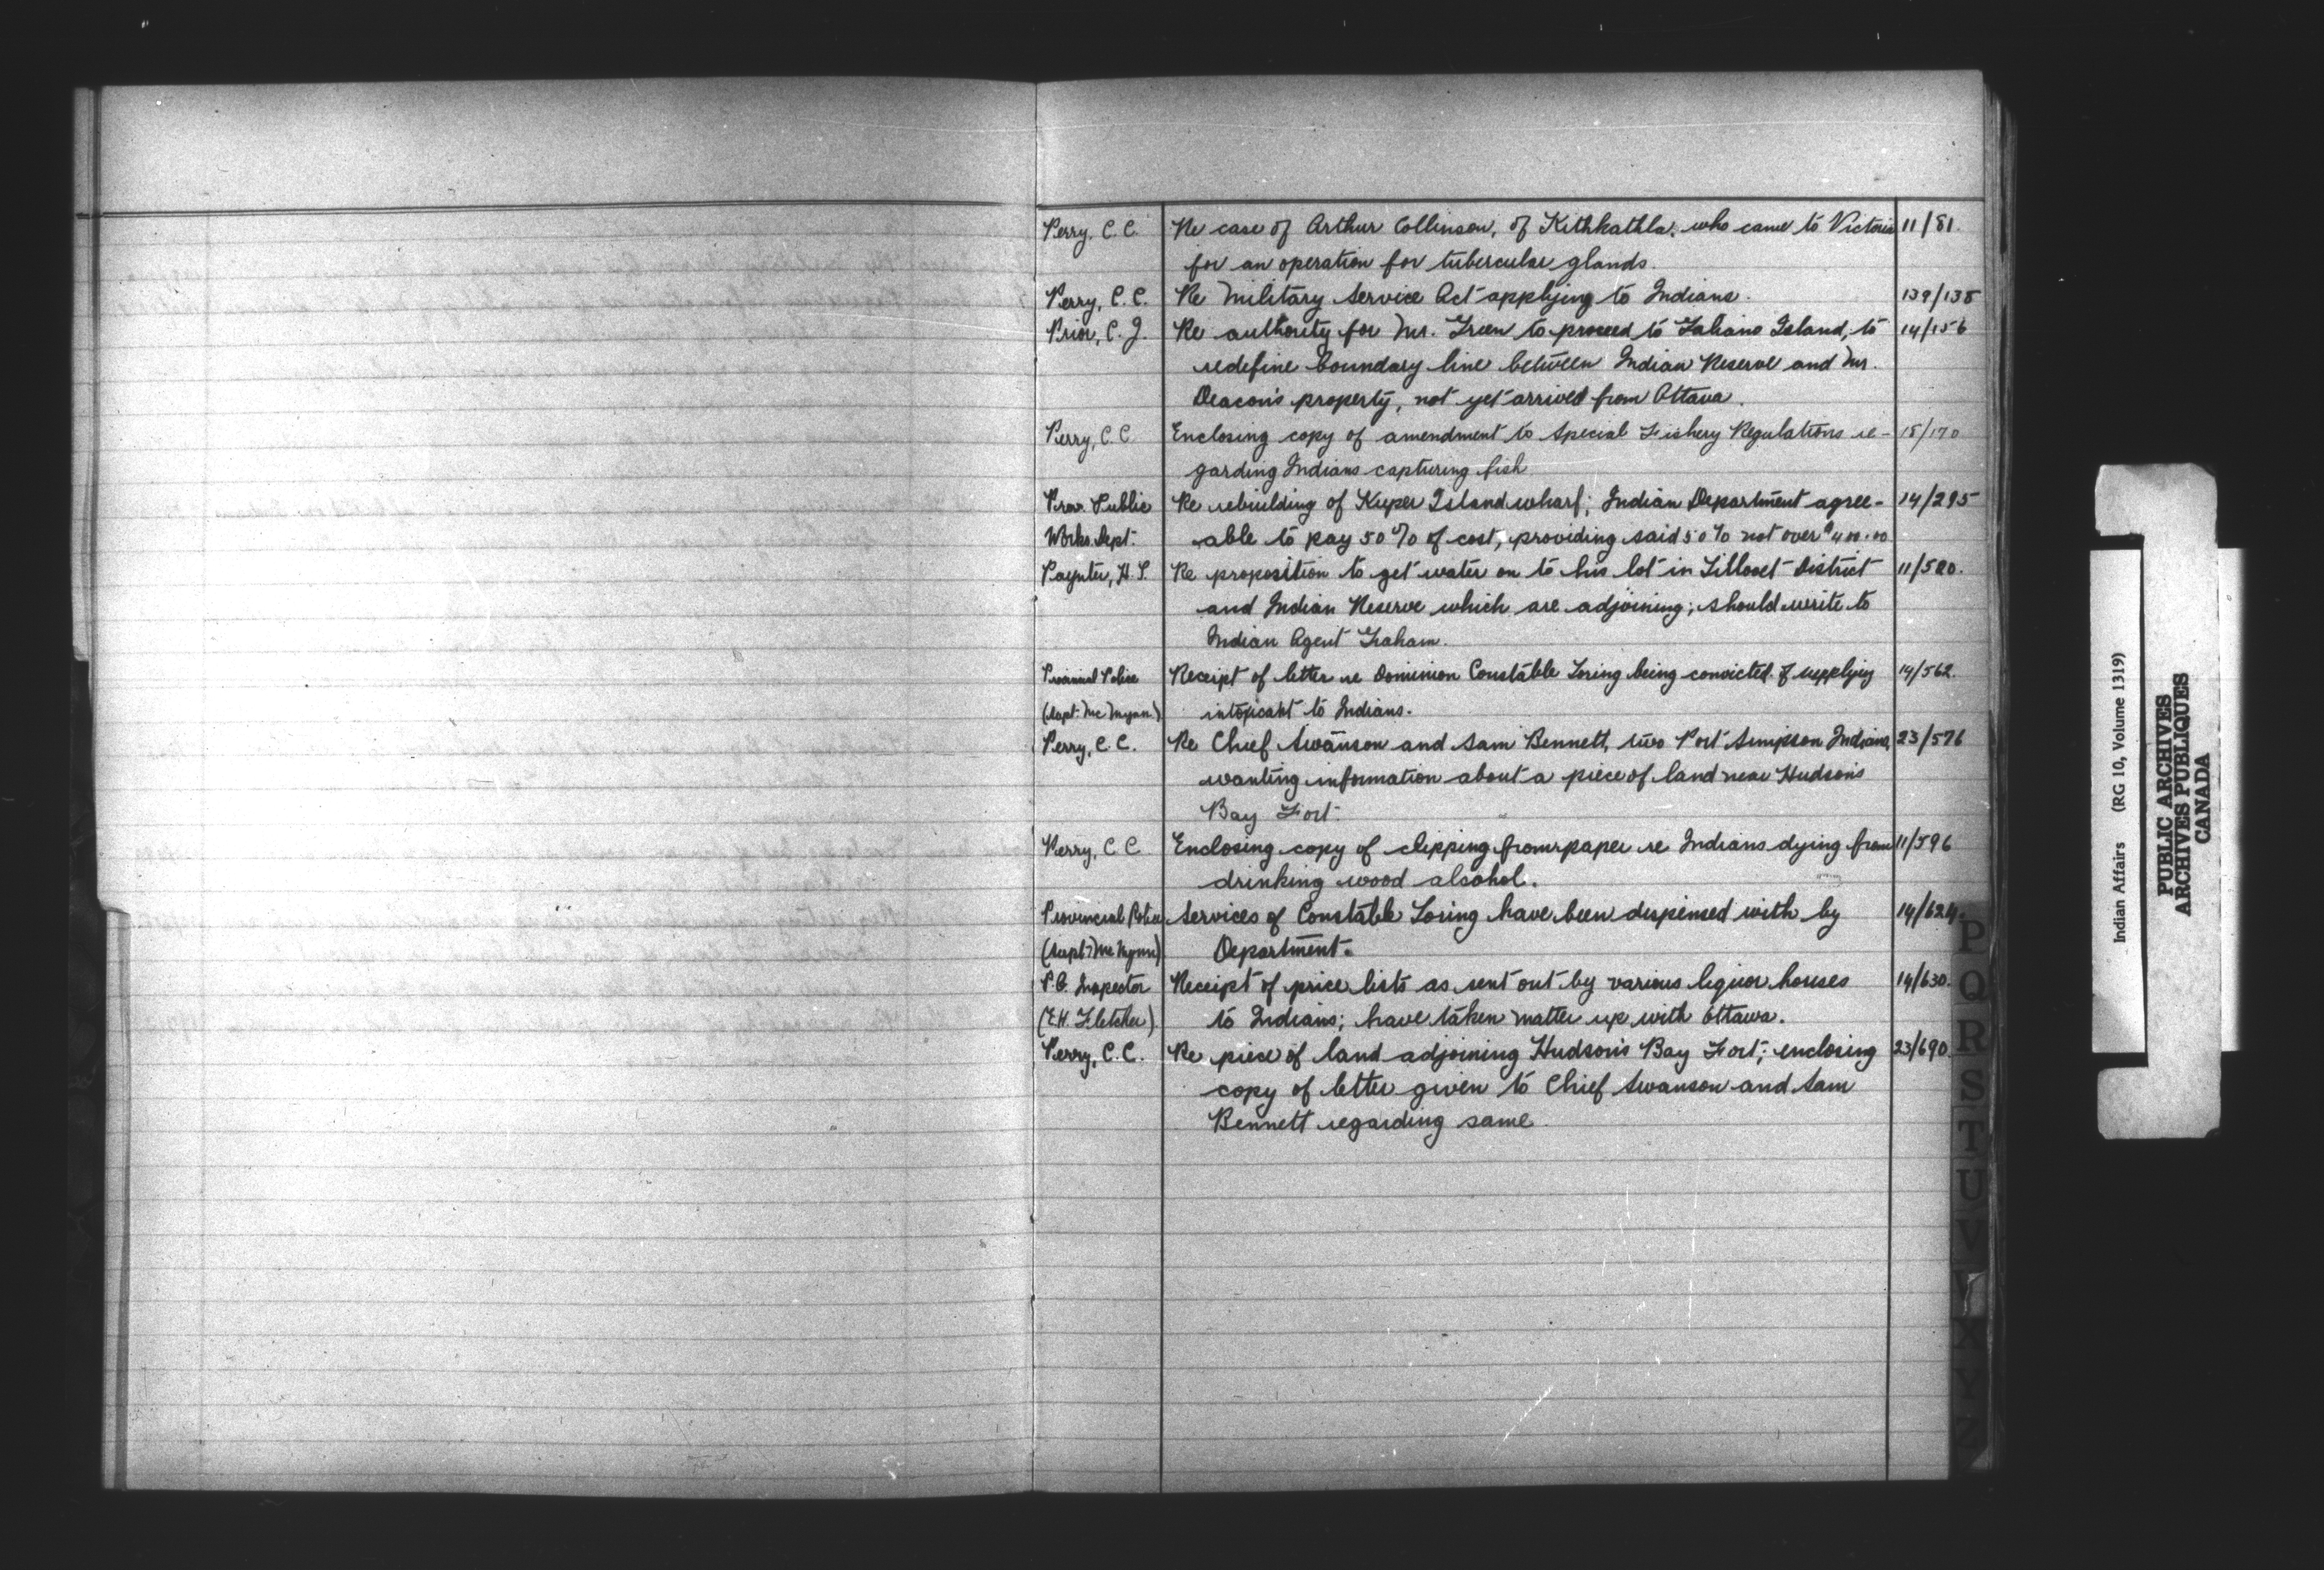 Perry, C. C. Re case of Arthur Collinson, of Kithkathla, who came to Victoria 11/81.
for an operation for tubercular glands.
Perry, C. C. Re Military Service Act applying to Indians. 139/138
Prior, C. J. Re authority for Mr. Green to proceed to Galiano Island, to 14/156
redefine boundary line between Indian Reserve and Mr.
Deacon's property, not yet arrived from Ottawa.
Perry, C. C. Enclosing copy of amendment to Special Fishery Regulations re- 15/170
garding Indians capturing fish
Prov. Public Re rebuilding of Kuper Island wharf; Indian Department agree- 14/295
Works Dept. able to pay 50% of cost, providing said 50% not over $400.00
Paynter, H. S. Re proposition to get water on to his lot in Lillooet District 11/580.
and Indian Reserve which are adjoining; should write to
Indian Agent Graham.
Provincial Police Receipt of letter re Dominion Constable Loring being convicted of supplying 14/562.
(Supt. McMynn) intoxicant to Indians.
Perry, C. C. Re Chief Swanson and Sam Bennett, two Port Simpson Indians, 23/576
wanting information about a piece of land near Hudson's
Bay Fort.
Perry, C. C. Enclosing copy of clipping from paper re Indians dying from 11/596
drinking wood alcohol.
Provincial Police Services of Constable Loring have been dispensed with by 14/624.
(Supt. McMynn) Department.
P.O. Inspector Receipt of price lists as sent out by various liquor houses 14/630.
(E.H. Fletcher) to Indians; have taken matter up with Ottawa.
Perry, C. C. Re piece of land adjoining Hudson's Bay Fort; enclosing 23/690.
copy of letter given to Chief Swanson and Sam
Bennett regarding same.
P
Q
R
S
T
U
V
X
Y
Z
Indian Affairs (RG 10, Volume 1319)
PUBLIC ARCHIVES
ARCHIVES PUBLIQUES
CANADA